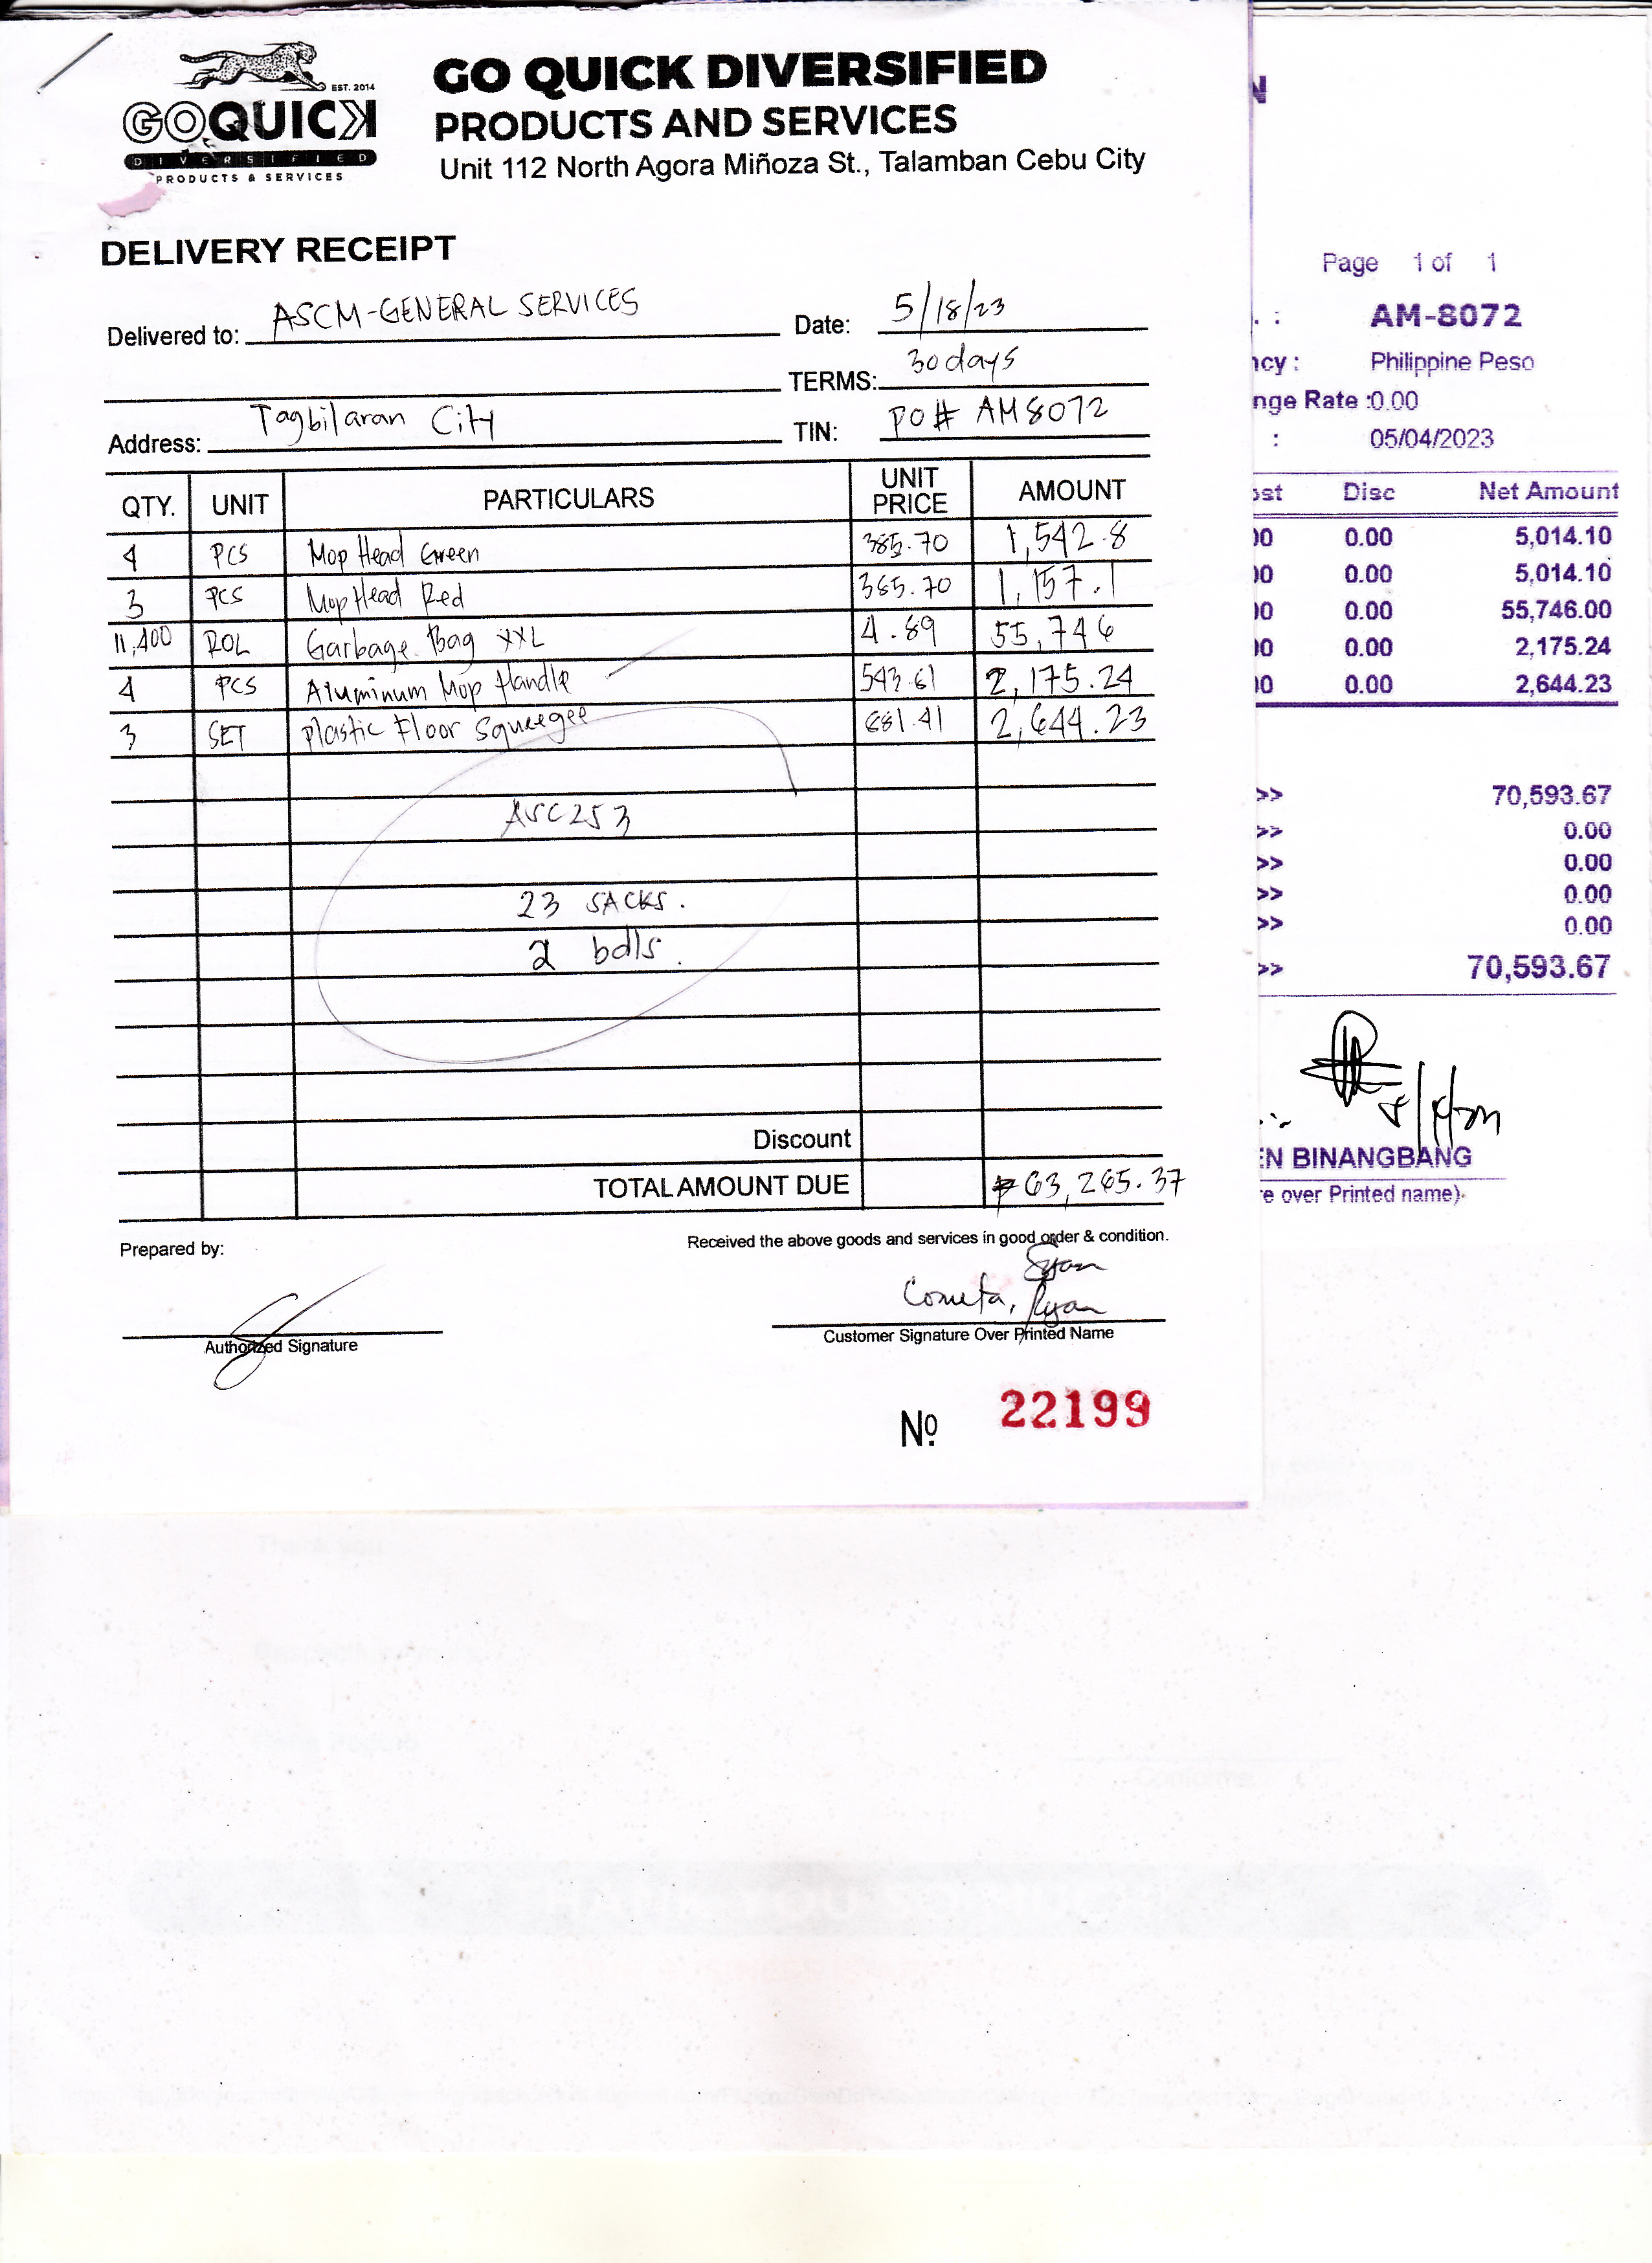 EST. 2014
GOQUICK
DIVERSIFIED
PRODUCTS & SERVICES
GO QUICK DIVERSIFIED
PRODUCTS AND SERVICES
Unit 112 North Agora Miñoza St., Talamban Cebu City
DELIVERY RECEIPT
Delivered to: ASCM-GENERAL SERVICES Date: 5/18/23
TERMS: 30 days
Address: Tagbilaran City TIN: PO# AM8072
QTY. UNIT PARTICULARS UNIT PRICE AMOUNT
4 PCS Mop Head Green 385.70 1,542.8
3 PCS Mop Head Red 385.70 1,157.1
11,400 ROL Garbage Bag XXL 4.89 55,746
4 PCS Aluminum Mop Handle 543.61 2,175.24
3 SET Plastic Floor Squeegee 881.41 2,644.23
ASC253
23 SACKS.
2 bdls.
Discount
TOTAL AMOUNT DUE ₱63,265.37
Prepared by:
Received the above goods and services in good order & condition.
Cometa, Ryan
Authorized Signature
Customer Signature Over Printed Name
Nº 22199
N
Page 1 of 1
. : AM-8072
ncy : Philippine Peso
nge Rate :0.00
: 05/04/2023
ost Disc Net Amount
00 0.00 5,014.10
00 0.00 5,014.10
00 0.00 55,746.00
00 0.00 2,175.24
00 0.00 2,644.23
>> 70,593.67
>> 0.00
>> 0.00
>> 0.00
>> 0.00
>> 70,593.67
EN BINANGBANG
re over Printed name)